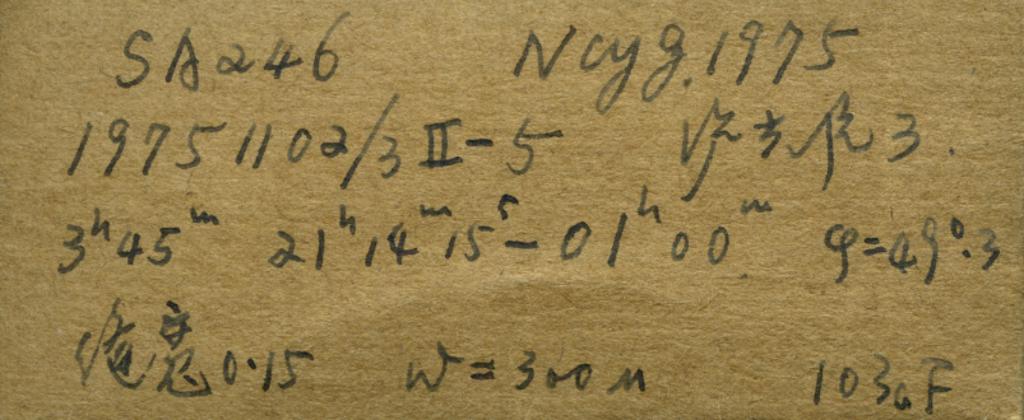 SA246 N Cyg. 1975
1975 11 02/3 II-5 3.
3ʰ45ᵐ 21ʰ14ᵐ15ˢ-01ʰ00ᵐ φ=49°.3
缝宽0.15 W=300μ 103aF